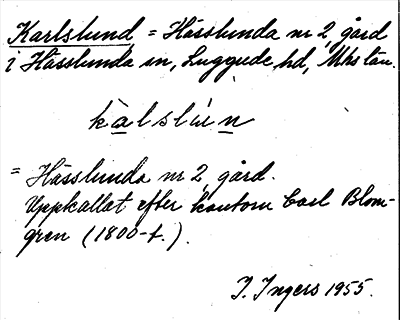 Karlslund = Hässlunda nr 2, gård
i Hässlunda sn, Luggude hd, Mhs län.
kàlslún
= Hässlunda nr 2, gård.
Uppkallat efter kantorn Carl Blom-
gren (1800-t.).
I. Ingers 1955.